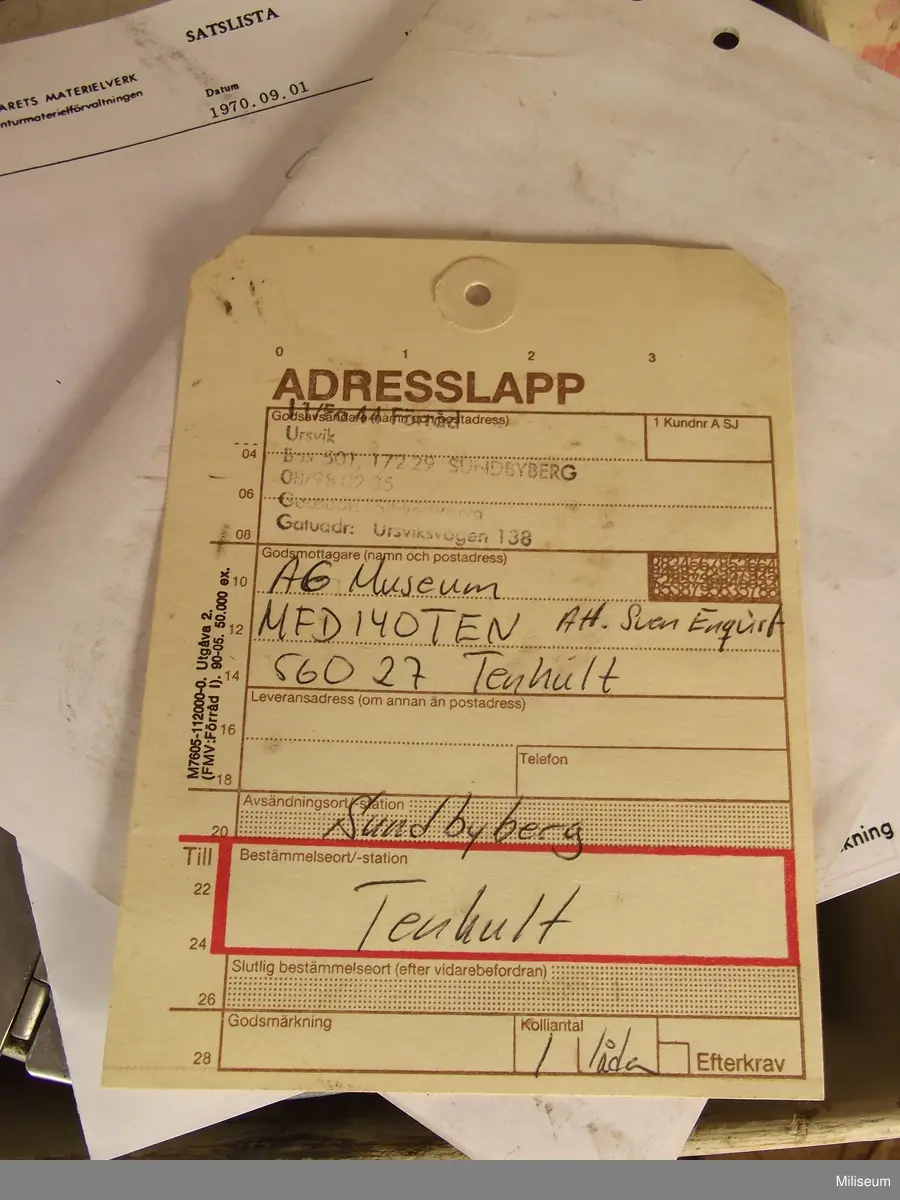 SATSLISTA
ARETS MATERIELVERK
nturmaterielförvaltningen
Datum
1970.09.01
0 1 2 3
ADRESSLAPP
Förråd
Godsavsändare (namn och postadress)
1 Kundnr A SJ
Ursvik
04
Box 501, 172 29 SUNDBYBERG
06
Gatuadr: Ursviksvägen 138
08
Godsmottagare (namn och postadress)
10
AG Museum
12
MFD 140TEN Att. Sven Enqvist
14
560 27 Tenhult
Leveransadress (om annan än postadress)
16
Telefon
18
M7605-112000-0. Utgåva 2.
(FMV:Förråd I). 90-05. 50.000 ex.
Avsändningsort/-station
20
Sundbyberg
Till
Bestämmelseort/-station
22
Tenhult
24
Slutlig bestämmelseort (efter vidarebefordran)
26
Godsmärkning
Kolliantal
28
1 låda
Efterkrav
kning
Miliseum